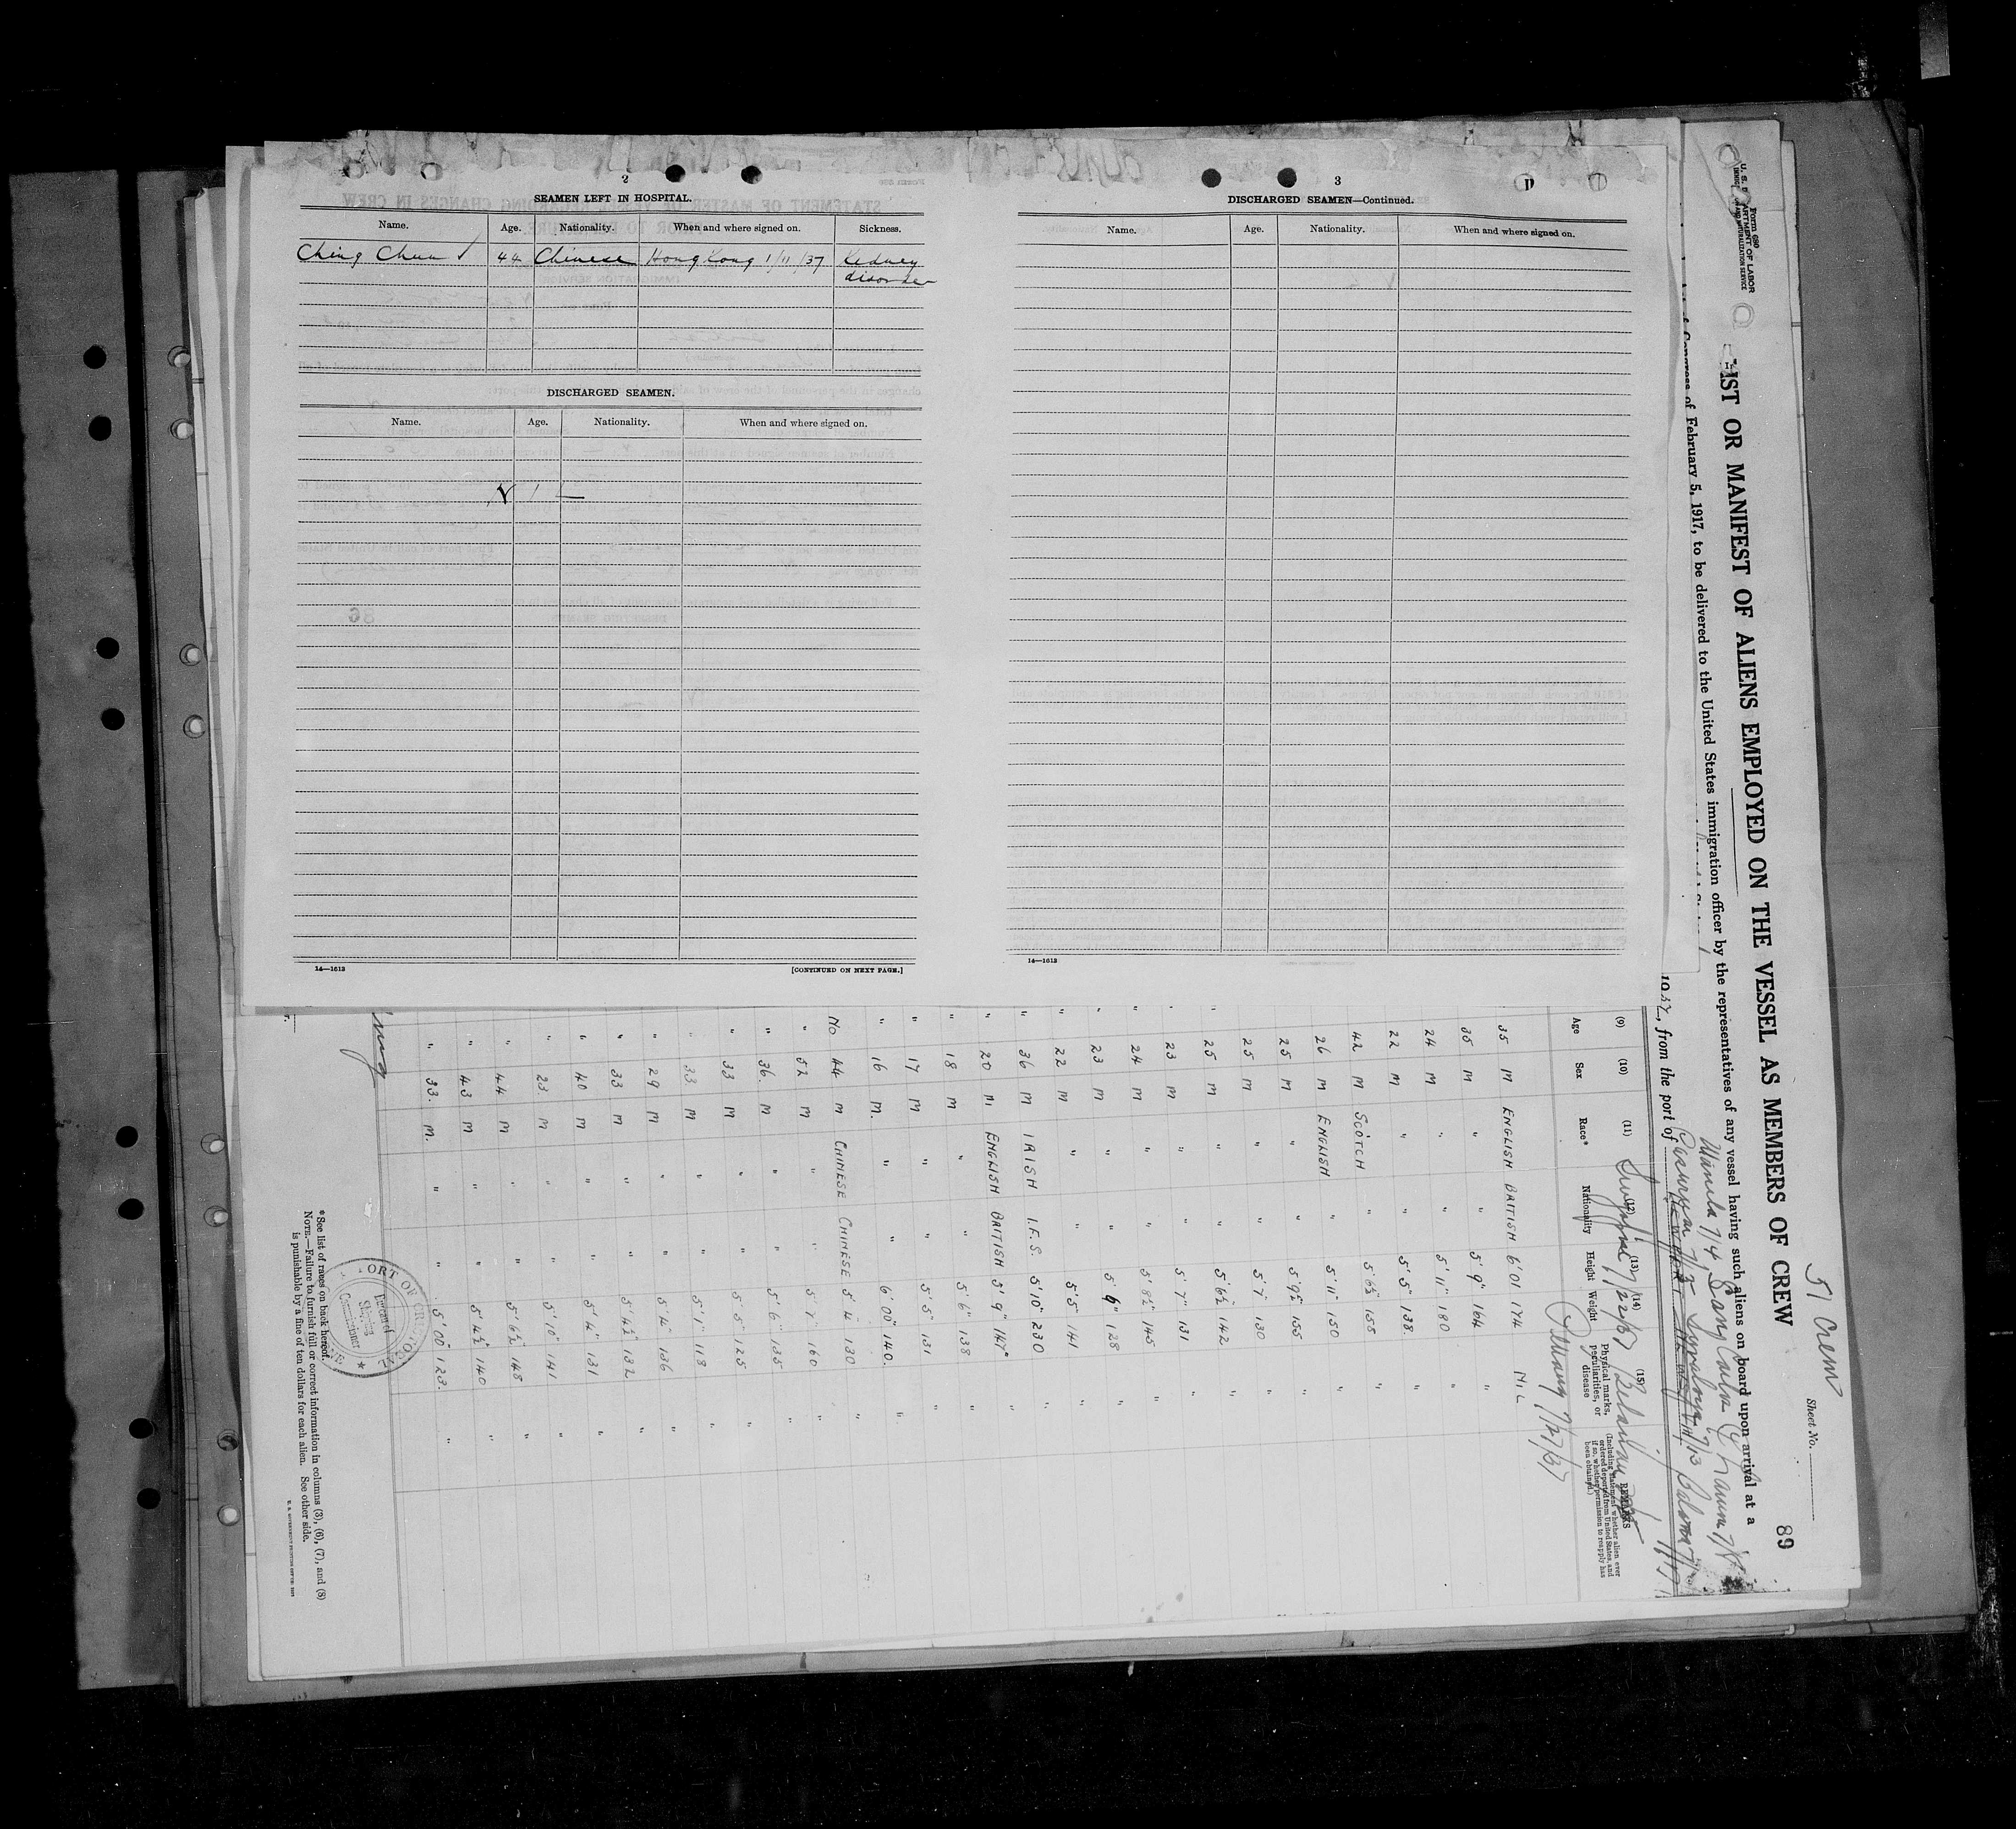 2
SEAMEN LEFT IN HOSPITAL.
Name. Age. Nationality. When and where signed on. Sickness.
Ching Chun 44 Chinese Hong Kong 1/11/37 Kedney
disorder
DISCHARGED SEAMEN.
Name. Age. Nationality. When and where signed on.
14—1613 [CONTINUED ON NEXT PAGE.]
3
DISCHARGED SEAMEN—Continued.
Name. Age. Nationality. When and where signed on.
14—1613
51 Crew
Sheet No.
89
Form 680
LIST OR MANIFEST OF ALIENS EMPLOYED ON THE VESSEL AS MEMBERS OF CREW
of Congress of February 5, 1917, to be delivered to the United States immigration officer by the representatives of any vessel having such aliens on board upon arrival at a
Manila 7/4
, from the port of
(9) (10) (11) (12) (13) (14) (15)
Age Sex Race* Nationality Height Weight Physical marks, peculiarities, or disease REMARKS
35 M ENGLISH BRITISH 6'01 174 NIL
35 M " " 5'9" 164 "
24 M " " 5'11" 180 "
22 M " " 5'5" 138 "
42 M SCOTCH " 5'6½ 155 "
26 M ENGLISH " 5'11" 150 "
25 M " " 5'9½ 155 "
25 M " " 5'7" 130 "
25 M " " 5'6½ 142 "
23 M " " 5'7" 131 "
24 M " " 5'8½ 145 "
23 M " " 5'6" 128 "
22 M " " 5'5" 141 "
36 M IRISH I.F.S. 5'10" 230 "
20 M ENGLISH BRITISH 5'9" 147 "
18 M " " 5'6" 138 "
17 M " " 5'5" 131 "
16 M " " 6'00" 140 "
No 44 M CHINESE CHINESE 5'4" 130 "
" 52 M " " 5'7" 160 "
" 36 M " " 5'6" 135 "
" 33 M " " 5'5" 125 "
" 33 M " " 5'1" 118 "
" 29 M " " 5'4" 136 "
" 33 M " " 5'4½ 132 "
" 40 M " " 5'4" 131 "
" 23 M " " 5'10" 141 "
" 44 M " " 5'6½ 148 "
" 43 M " " 5'4½ 140 "
" 33 M " " 5'00" 123 "
* See list of races on back hereof.
NOTE.—Failure to furnish full or correct information in columns (3), (6), (7), and (8)
is punishable by a fine of ten dollars for each alien. See other side.